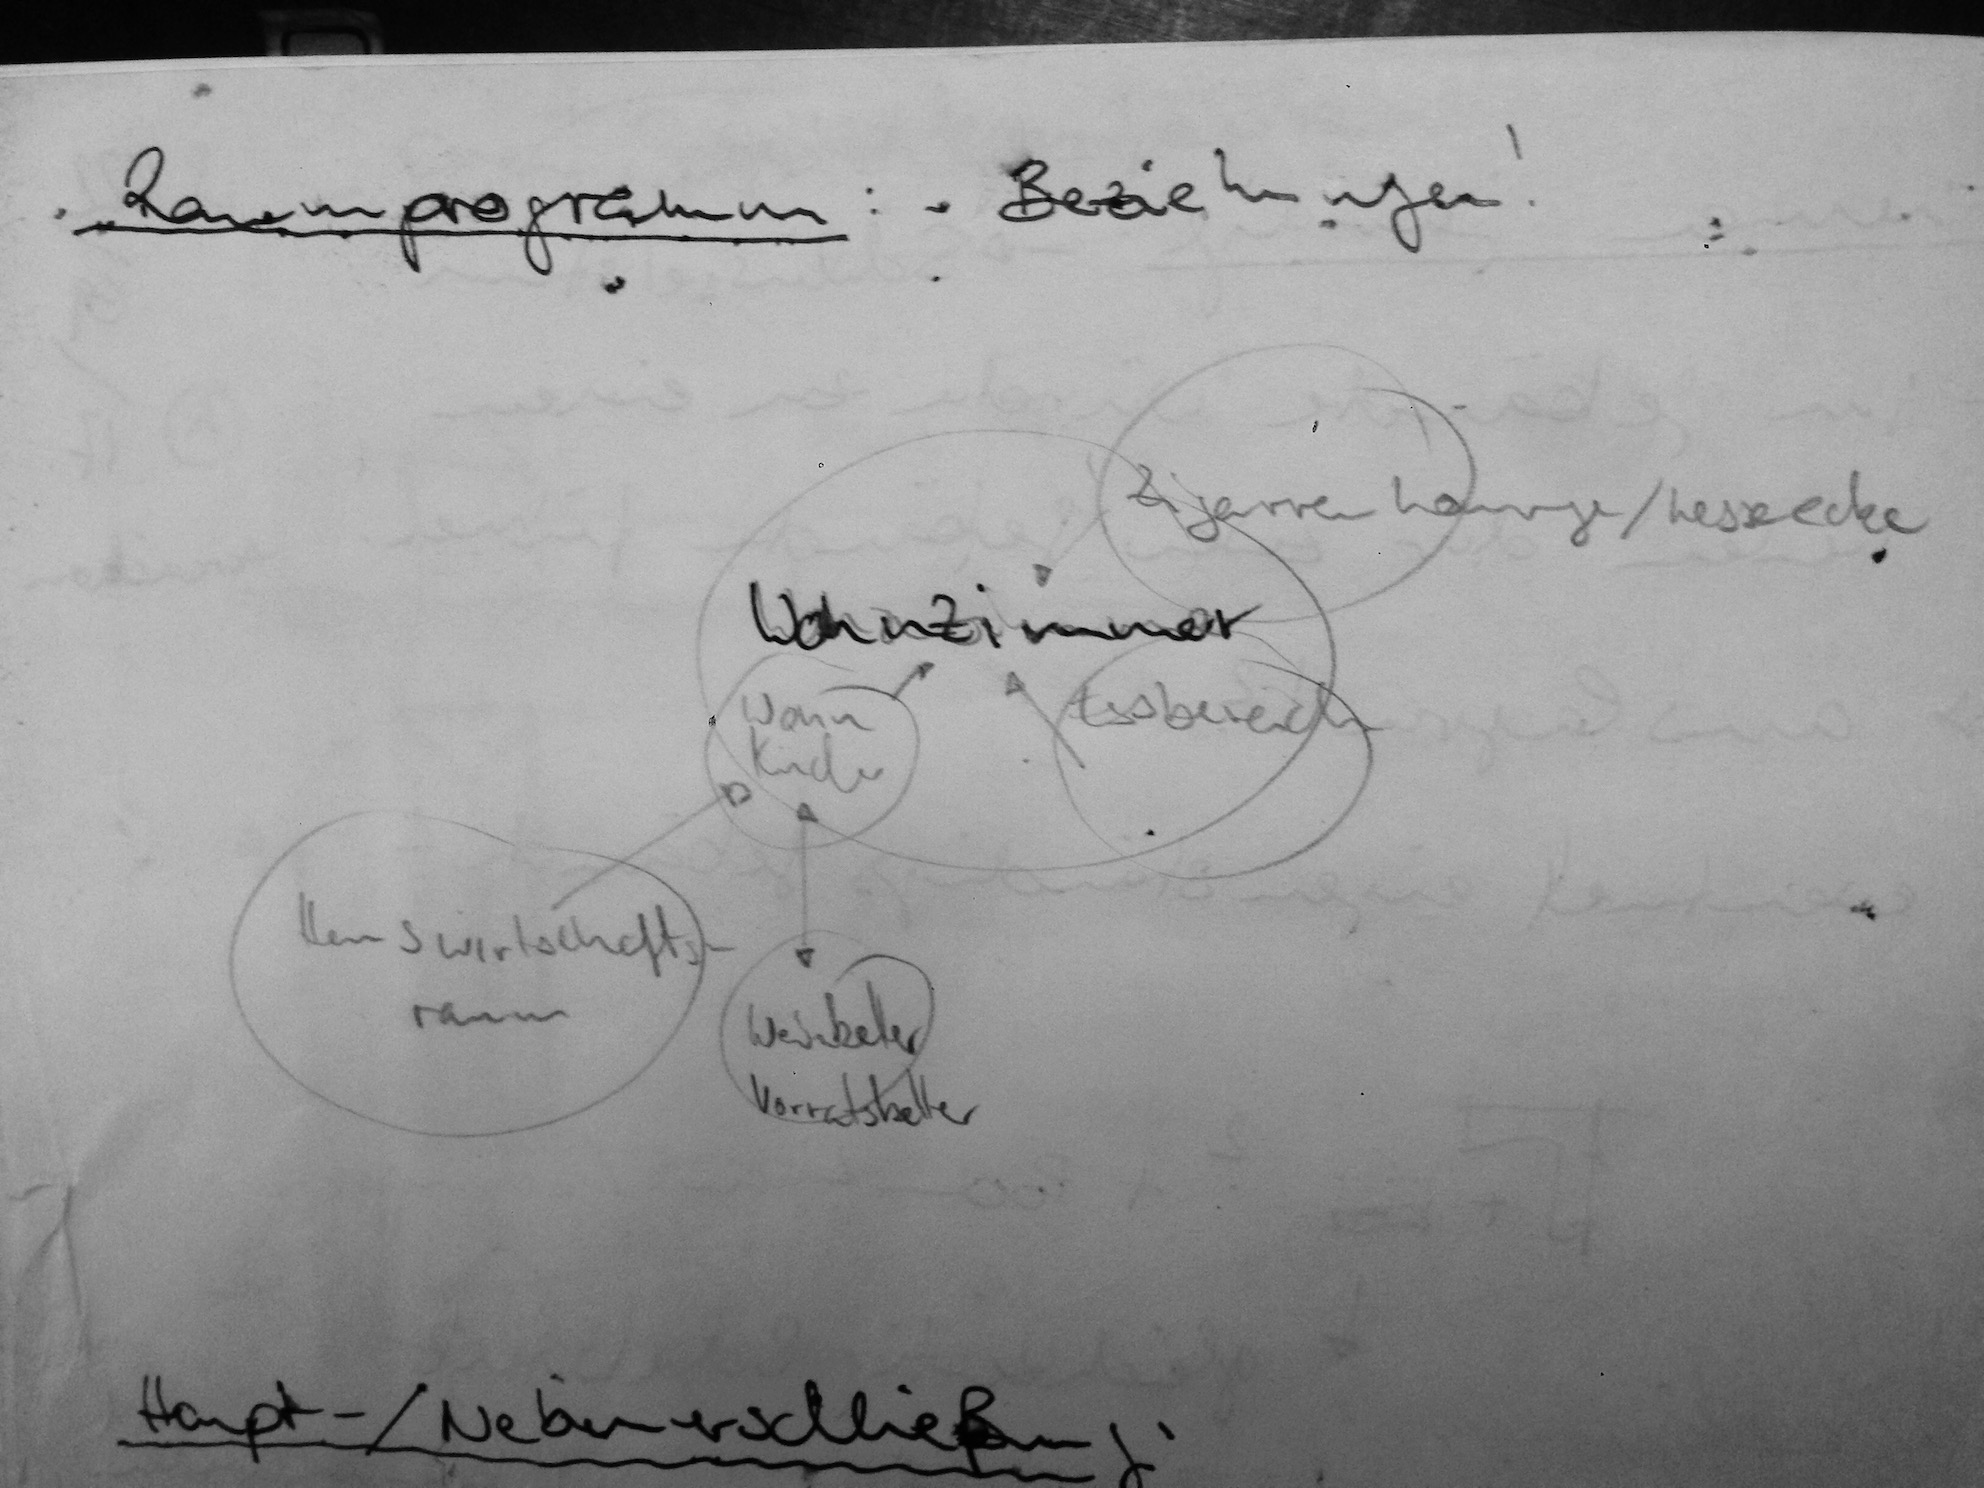 Raumprogramm: - Beziehungen!
Zigarren Lounge/Leseecke
Wohnzimmer
Wohn
Essbereich
Hauswirtschafts-
raum
Weinkeller
Vorratskeller
Haupt-/Nebenerschließung: